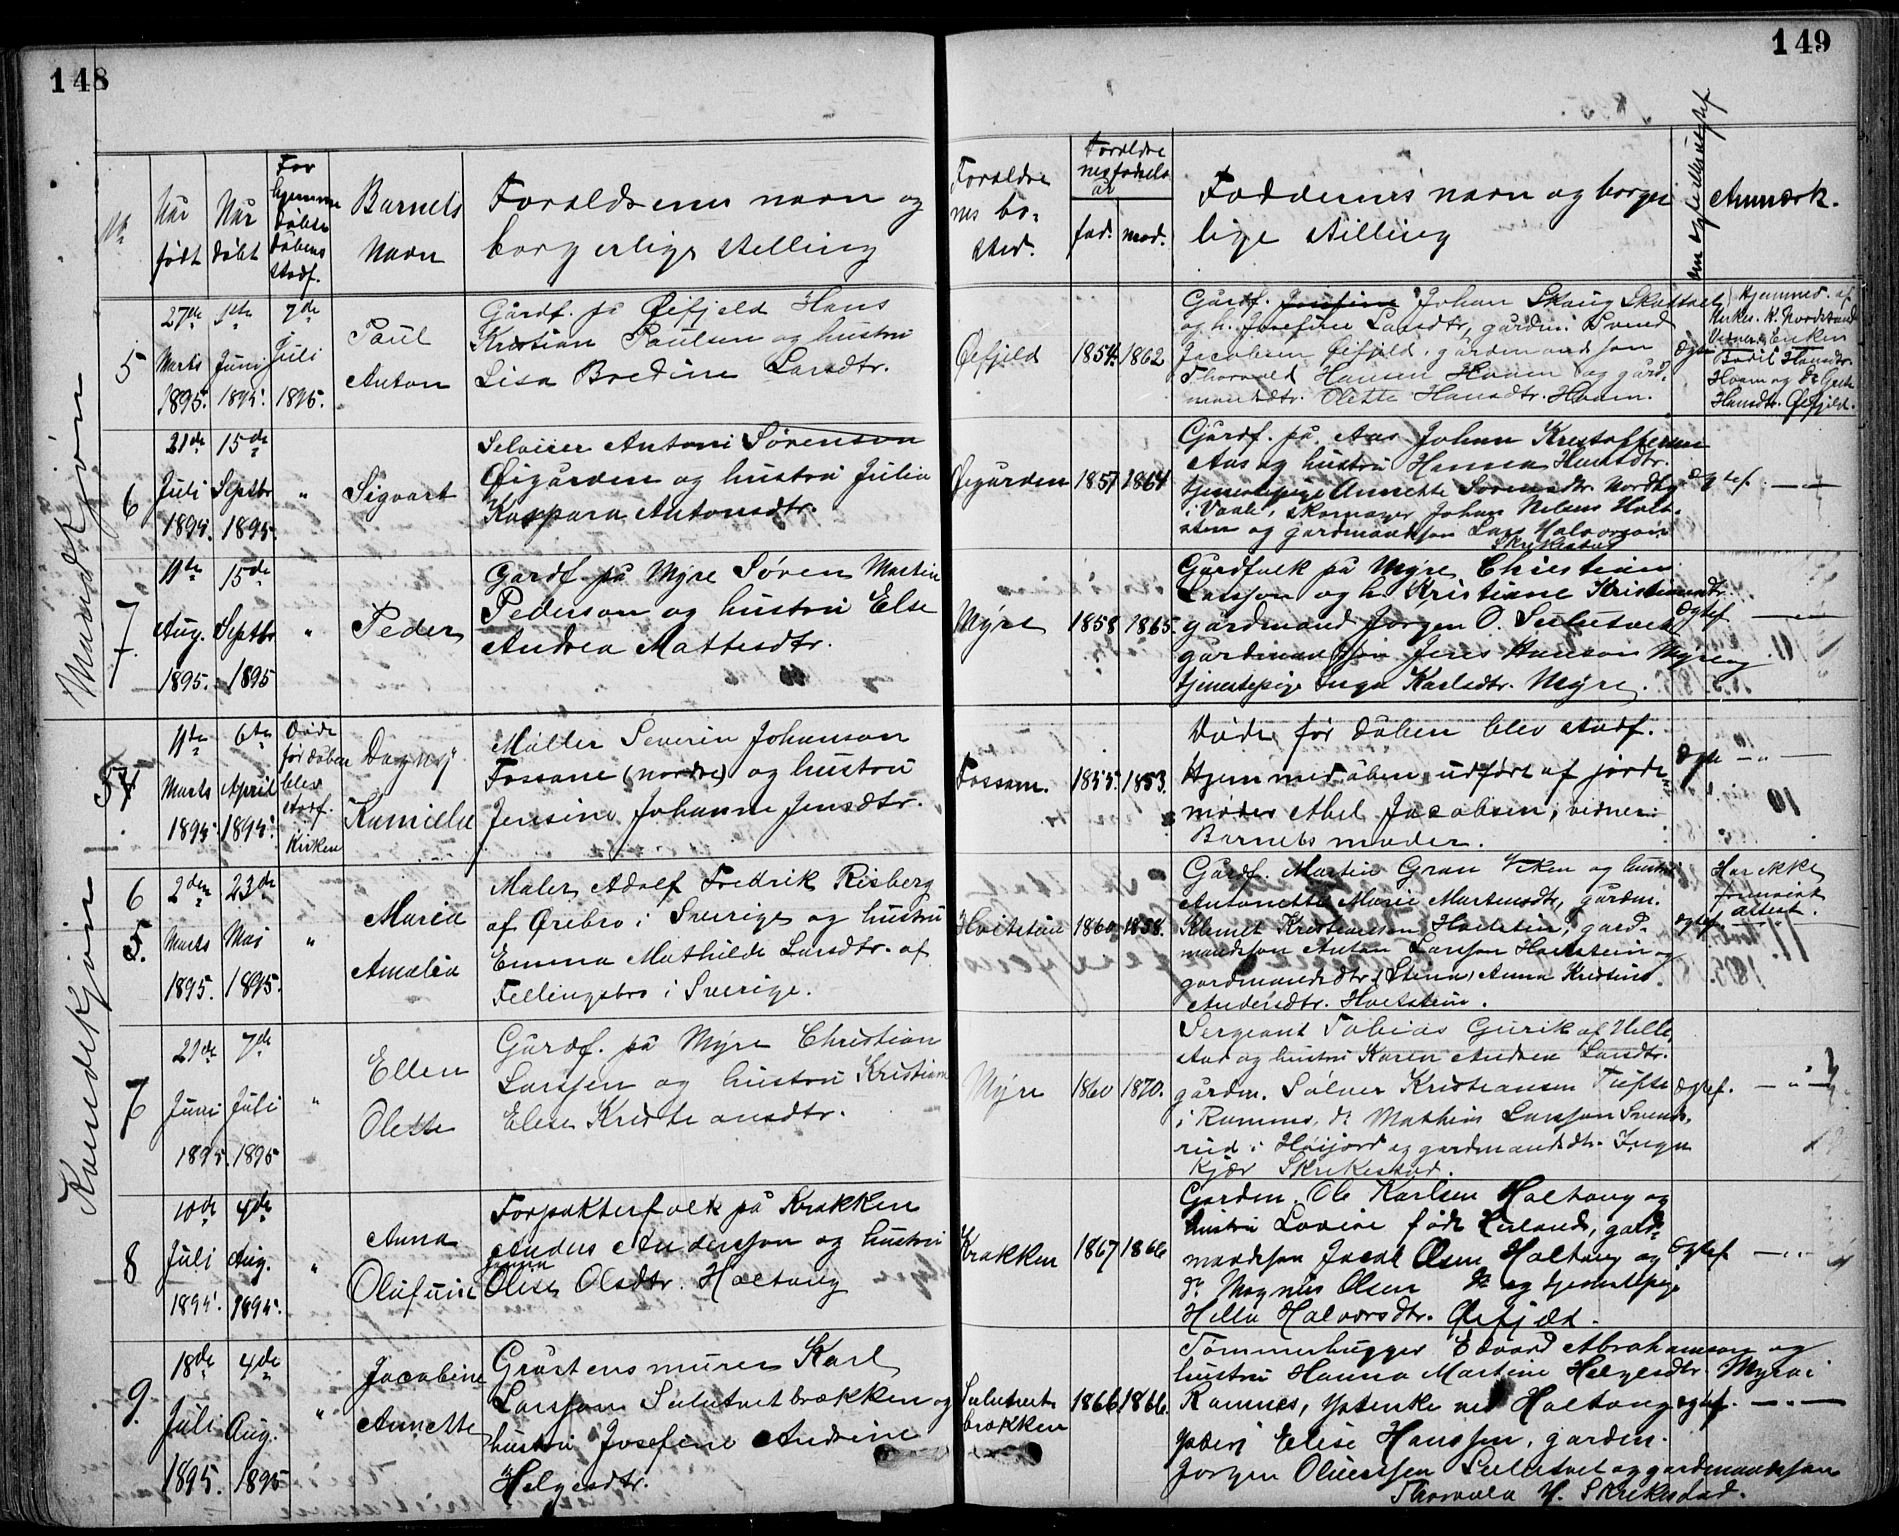 148
149
Når født
Når døbt
For hjemme døbte dåbens stadf.
Barnets Navn
Forældrenes navn og borgerlige stilling
Forældre nes bo- sted.
Forældre nes fødsels år
fad. mod.
Faddernes navn og borger lige stilling
Anmærk.
Mandkjøn
5
27de Marts 1895.
Juni 1895.
7de Juli 1895.
Paul Anton
Gårdf. på Øifjeld Hans
Kristian Paulsen og hustru
Lisa Bredine Larsdtr.
Øifjeld
1854. 1862
Gårdf. Josefine Johan Skaug
og h. Josefine Larsdtr, gårdm. Svend
Jacobsen Øifjeld, gårdmandssøn
Thorvald Hansen Hvam og gård-
mandsdtr. Olette Hansdtr. Hvam.
Hjemmed. af
Kirkes. K. Nordstrand
Vidner: Enken
Hansdtr.
Hvam og
Hansdtr. Øifjeld.
6
21de Juli 1895.
15de Septbr 1895.
"
Sigvart
Selveier Antoni Sørenson
Øigården og hustru Julia
Kaspara Antonsdtr.
Øigården
1857 1864
Gårdf. på Aas Johan Kristoffersen
Aas og hustru Hanna Hansdtr.
tjenestepige Annette Sørensdtr Nordby
i Vaale, skomager Johan Nilsen Holt-
sten og gårdmandssøn Lars Halvorsen
Skrikestad
ægtef.
7
11te Aug. 1895.
15de Septbr 1895
"
Peder
Gårdf. på Myre Søren Martin
Pederson og hustru Else
Andrea Mattesdtr.
Myre
1858 1865.
Gårdfolk på Myre Christian
Larsson og h. Kristiane Kristiansdtr.
gårdmand Jørgen O. Sulutvet
gårdmandssøn Jens Hanson Myre og
tjenestepige Inga Karlsdtr. Myre.
ægtef.
Kvindekjøn
11te Marts 1895.
6te April 1895.
Døde før dåben blev stadf. i Kirken
Dagny Kamilla
Møller Severin Johanson
Fossane (nordre) og hustru
Jensine Johanne Jensdtr.
Fossum.
1855. 1853.
Døde før dåben blev stadf.
Hjemmedåben udført af jorde-
moder Abel Jacobsen, vidner:
Barnets moder.
10
6
5.
2den Marts 1895.
23de Mai 1895.
"
Maria Amalia
Maler Adolf Fredrik Risberg
af Ørebro i Sverige og hustru
Emma Mathilde Larsdtr. af
Fellingsbro i Sverige.
Hvitstein
1860 1858.
Gårdf. Martin Gran Viken og hustru
Antonette Marie Martensdtr, gårdm.
Klemet Kristiansen Hvitstein, gård-
mandssøn Anton Larsson Hvitstein og
gårdmandsdtr. (Stina) Anna Kristine
Andersdtr. Hvitstein.
ægtef.
Har ikke
attest.
7
21de Juni 1895.
7de Juli 1895
"
Ellen Olette
Gårdf. på Myre Christian
Larssen og hustru Kristiane
Elise Kristiansdtr.
Myre
1860 1870.
Sergeant Tobias Gurik af Hille
Aas og hustru Karen Andrea Larsdtr.
gårdm. Sølver Kristiansen Tufte
i Ramnes, do Mathias Larsson Svends-
rud i Høijord og gårdmandsdtr. Inga
Kjær Skrikestad.
ægtef.
8
10de Juli 1895.
4de Aug. 1895.
"
Anna Olufine
Forpakterfolk på Krakken
Anders Andersson og hustru
Olise Olsdtr. Holtung
Krakken
1867 1866
Gårdm. Ole Karlsen Holtung og
hustru Lovise født Hasland, gård-
mandssøn Jacob Olsen Holtung og
do. Magnus Olsen do og tjenestepige
Hella Halvorsdtr. Øifjeld.
ægtef.
9.
18de Juli 1895.
4de Aug. 1895
"
Jacobine Annette
Gråstensmurer Karl
Larsson Sulutvetbrækken og
hustru Josefine Andrine
Helgesdtr.
Sulutvet- brækken
1866. 1866.
Tømmerhugger Edvard Abrahamson og
hustru Hanna Martine Helgesdtr. Myra i
Ramnes, Ypenke ved Holtung
Elise Hanssen, gårdm.
Jørgen Oluissen Sulutvet og gårdmandssøn
Thorvald H. Skrikestad.
ægtef.